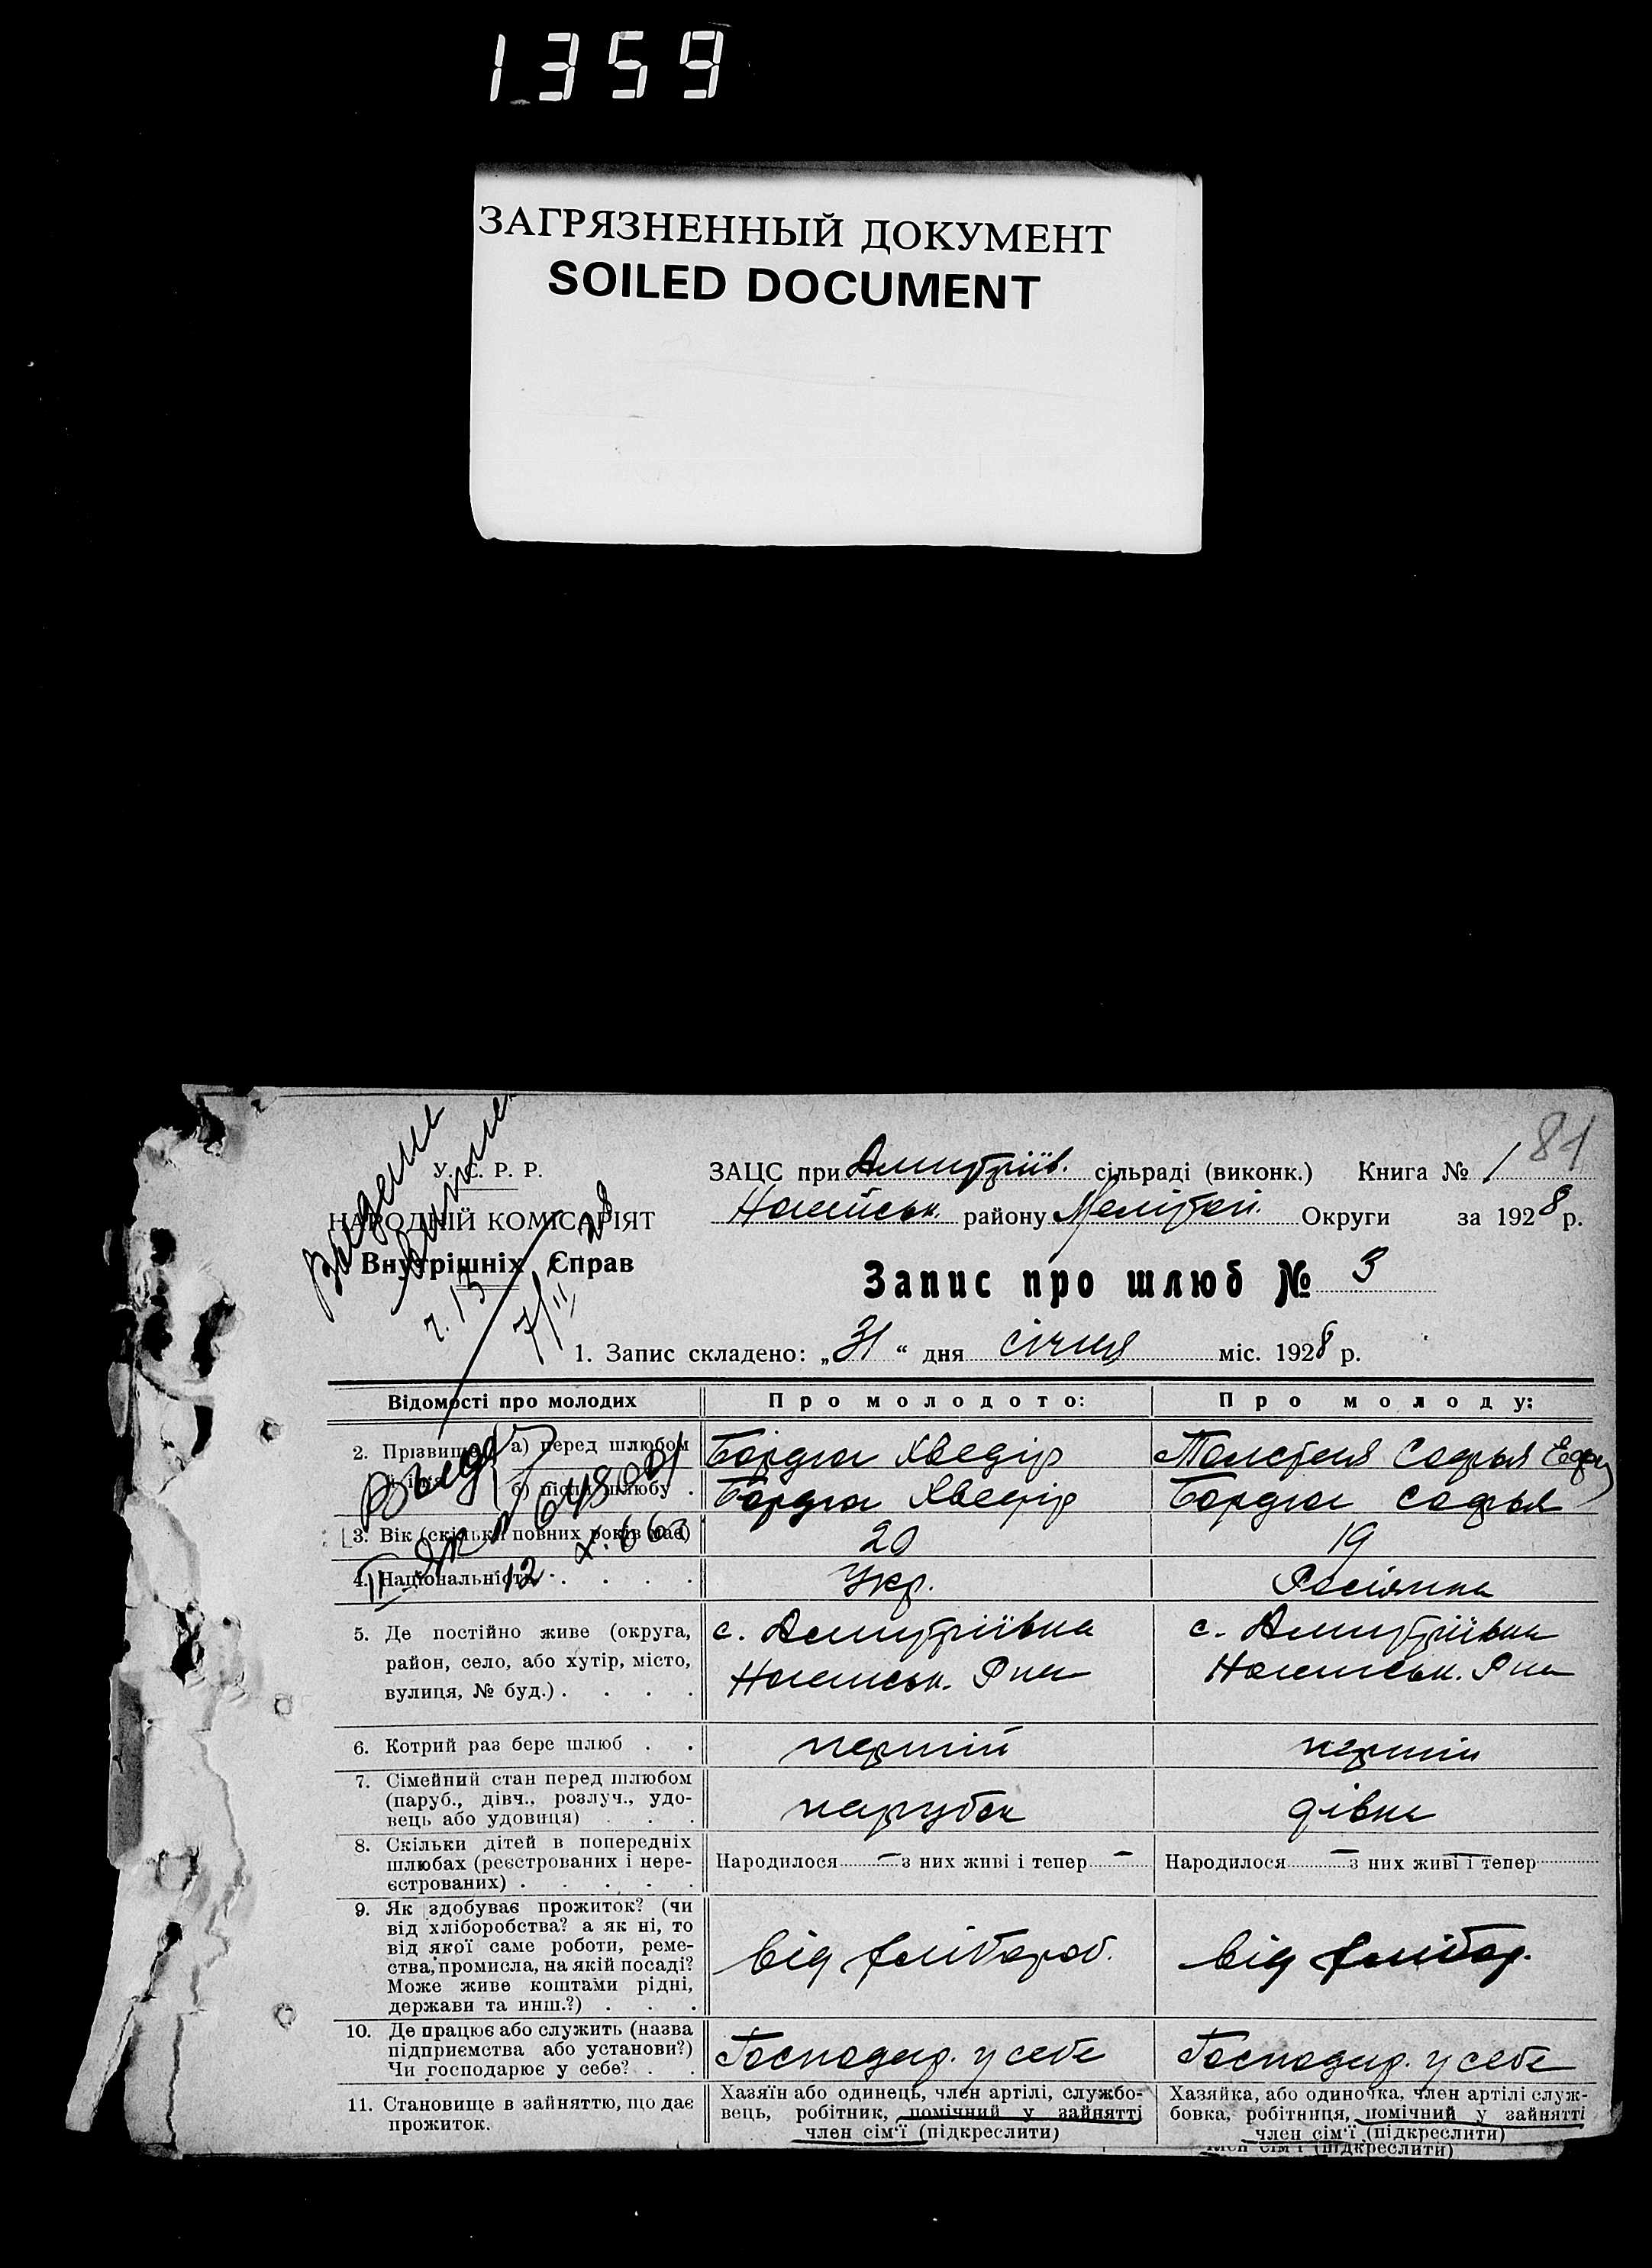 1359
ЗАГРЯЗНЕННЫЙ ДОКУМЕНТ
SOILED DOCUMENT
81
У. С. Р. Р.
НАРОДНІЙ КОМІСАРІЯТ
Внутрішніх Справ
7/II 28
ЗАЦС при Дмитріїв. сільраді (виконк.) Книга № 1
Ногайськ. району Меліт Округи за 1928 р.
Запис про шлюб № 3
1. Запис складено: „31“ дня січня міс. 1928 р.
Відомості про молодих
Про молодого:
Про молоду:
2. Прізвище а) перед шлюбом
Бордюг Хведір
Толстая Софья
б) після шлюбу .
Бордюг Хведір
Бордюг Софья
3. Вік (скільки повних років має)
20
19
4. Національність . . . . .
Укр.
Росіянка
5. Де постійно живе (округа,
район, село, або хутір, місто,
вулиця, № буд.) . . . .
с. Дмитріївка
Ногайськ. Р на
с. Дмитріївка
Ногайськ. Р на
6. Котрий раз бере шлюб . .
перший
перший
7. Сімейний стан перед шлюбом
(паруб., дівч., розлуч., удо-
вець або удовиця) . . .
парубок
дівка
8. Скільки дітей в попередніх
шлюбах (реєстрованих і нере-
єстрованих) . . . . .
Народилося — з них живі і тепер —
Народилося — з них живі і тепер —
9. Як здобуває прожиток? (чи
від хліборобства? а як ні, то
від якої саме роботи, реме-
ства, промисла, на якій посаді?
Може живе коштами рідні,
держави та инш.?) . . .
від хлібороб.
від хлібор.
10. Де працює або служить (назва
підприємства або установи?)
Чи господарює у себе? . .
Господар. у себе
Господар. у себе
11. Становище в зайняттю, що дає
прожиток.
Хазяїн або одинець, член артілі, службо-
вець, робітник, помічний у зайнятті
член сім'ї (підкреслити)
Хазяйка, або одиночка, член артілі служ-
бовка, робітниця, помічний у зайнятті
член сім'ї (підкреслити)
член сім'ї (підкреслити)